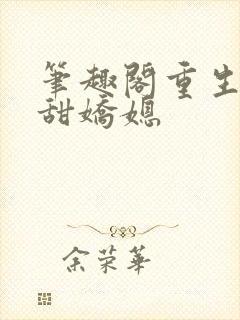 筆趣閣重生
甜嬌媳
余荣華